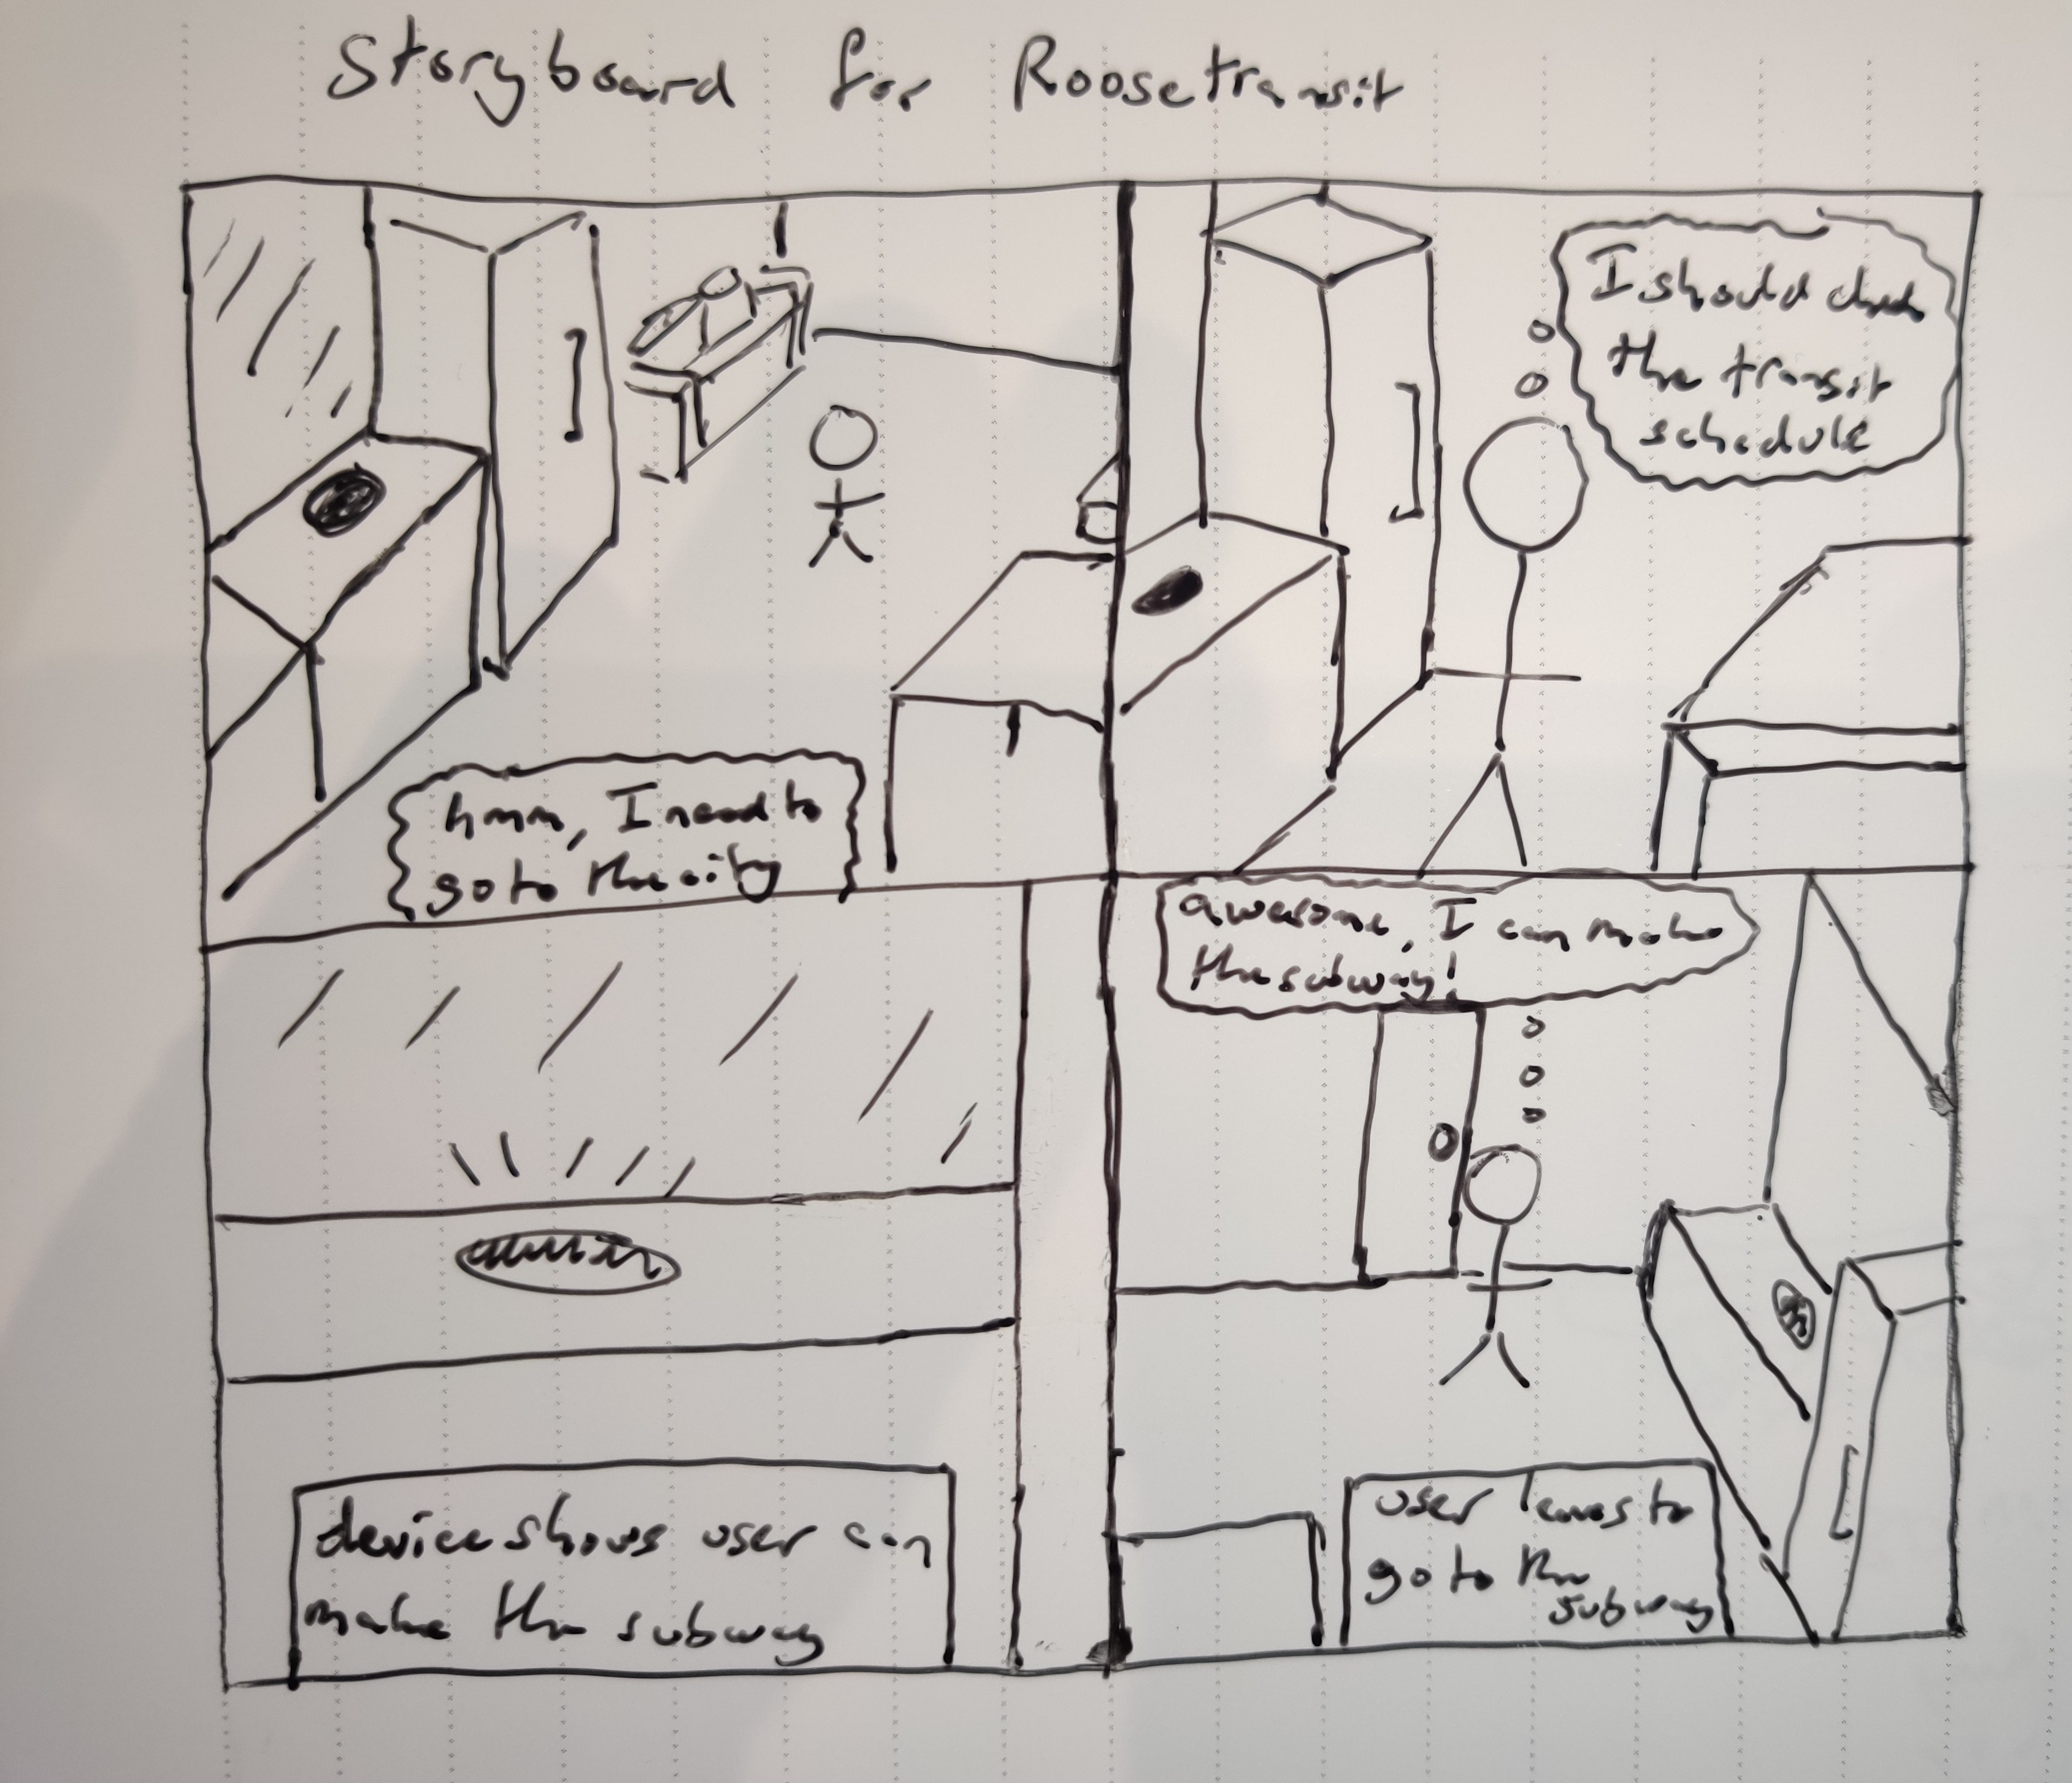 Storyboard for Roosetransit
hmm, I need to
go to the city
I should check
the transit
schedule
device shows user can
make the subway
awesome, I can make
the subway!
user leaves to
go to the
subway